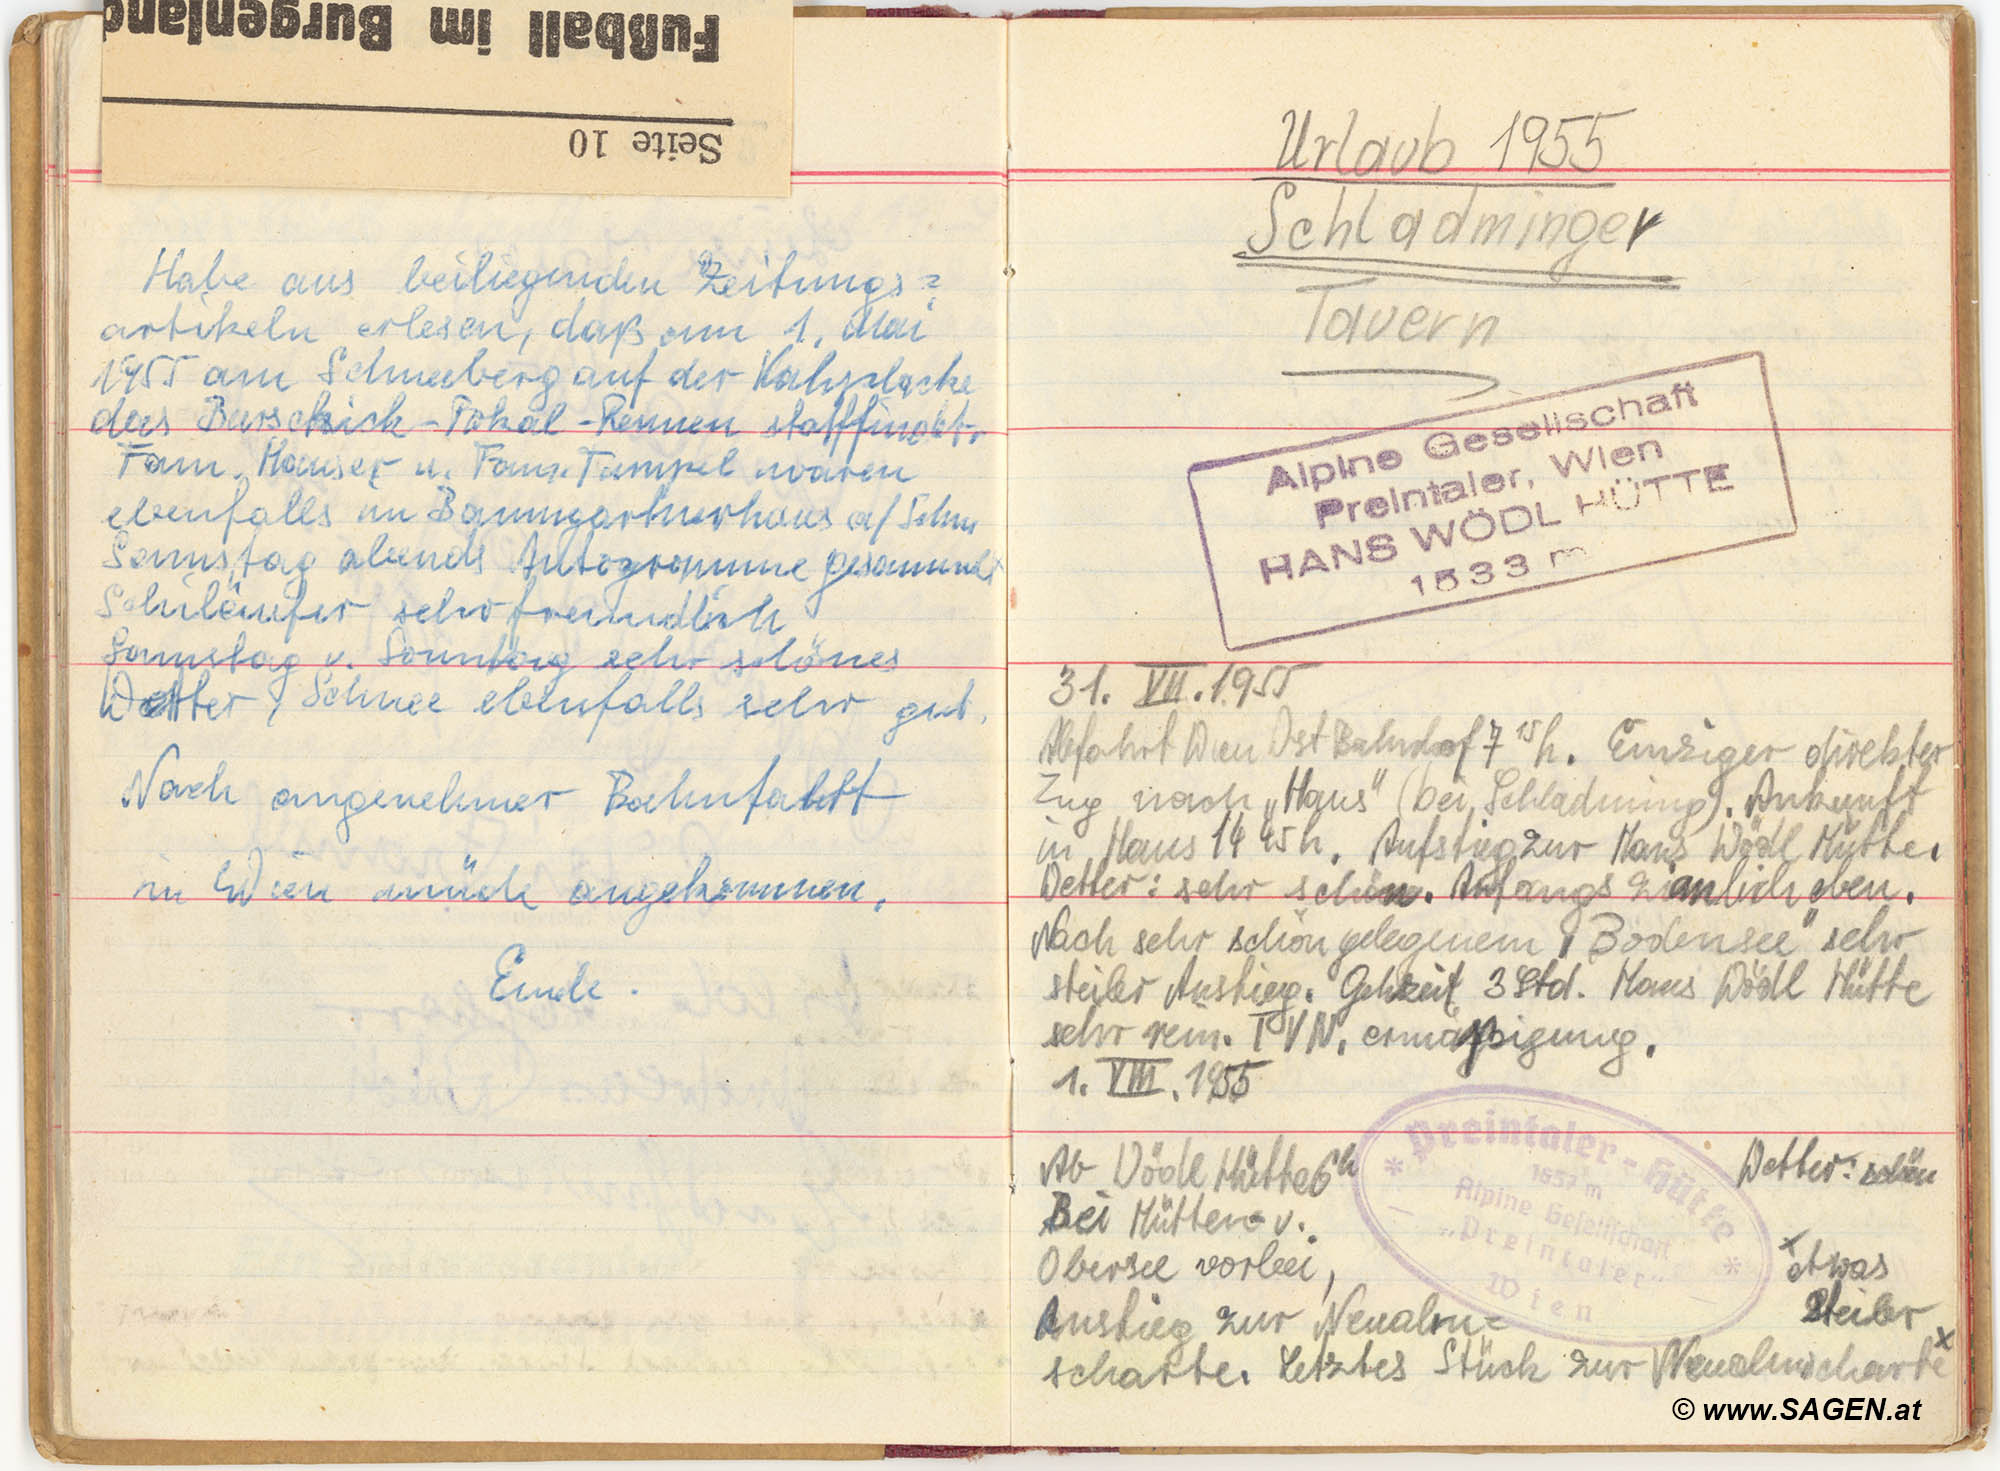 Fußball im Burgenland
Seite 10
Habe aus beiliegenden Zeitungs=
artikeln erlesen, daß am 1. Mai
1955 am Schneeberg auf der
das Burschick-Pokal-Rennen stattfindet.
Fam. Hauser u. Fam. Tampel waren
ebenfalls im Baumgartnerhaus a/ Schn
Samstag abends Autogramme gesammelt
Schiläufer sehr freundlich
Samstag u. Sonntag sehr schönes
Wetter, Schnee ebenfalls sehr gut.
Nach angenehmer Bahnfahrt
in Wien müde angekommen.
Ende.
Urlaub 1955
Schladminger
Tauern
Alpine Gesellschaft
Preintaler, Wien
HANS WÖDL HÜTTE
1533 m
31. VII. 1955
Abfahrt Wien Ost Bahnhof 7 15 h. Einziger direkter
Zug nach „Haus" (bei Schladming). Ankunft
in Haus 14 45 h. Aufstieg zur Hans Wödl Hütte.
Wetter: sehr schön. Anfangs ziemlich eben.
Nach sehr schön gelegenem „Bodensee" sehr
steiler Anstieg. Gehzeit 3 Std. Hans Wödl Hütte
sehr rein. T V N. ermäßigung.
1. VIII. 1955
Ab Wödl Hütte 6h Wetter: schön
Bei Hütten- u.
Obersee vorbei, x etwas
Anstieg zur Neualm= steiler
scharte. Letztes Stück zur Neualmscharte x
Preintaler-Hütte
1657 m
Alpine Gesellschaft
„Preintaler"
Wien
© www.SAGEN.at